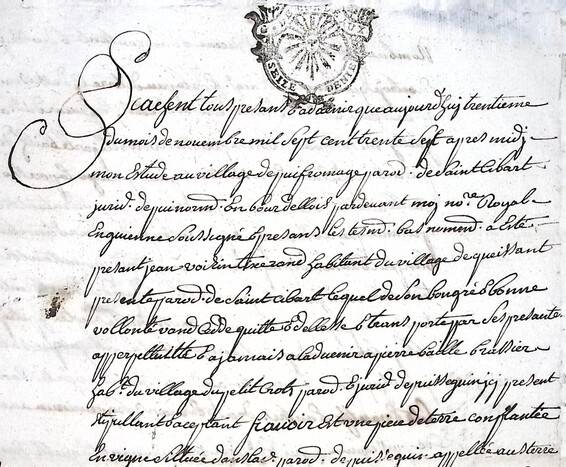 SEIZE DENIERS
Scachent tous presans & advenir que aujourd'huj trentieme
du mois de novembre mil sept cent trente sept apres midj
mon Estude au village de puifromage parod. de Saint Cibart
jurid. de puinormd. En bourdellois pardevant moj no.re Royal
En guienne Soussigné & presans les tesmd. bas nommed. a Esté
presant jean voisin tixerand habitant du village de
presente parod. de Saint Cibart lequel de Son bon gré & bonne
vollonté vand Cedde quitte & dellesse & transporte par Ses presante
apperpettuitté & a jamais a ladvenir a pierre baille brassier
hab.t du village du petit Crots parod. & jurid. de puisseguin icj present
stipullant & aceptant Scavoir Est une piece de terre Complantée
En vigne Scituée dans lad. parod. de puisseguin appellée au sterre